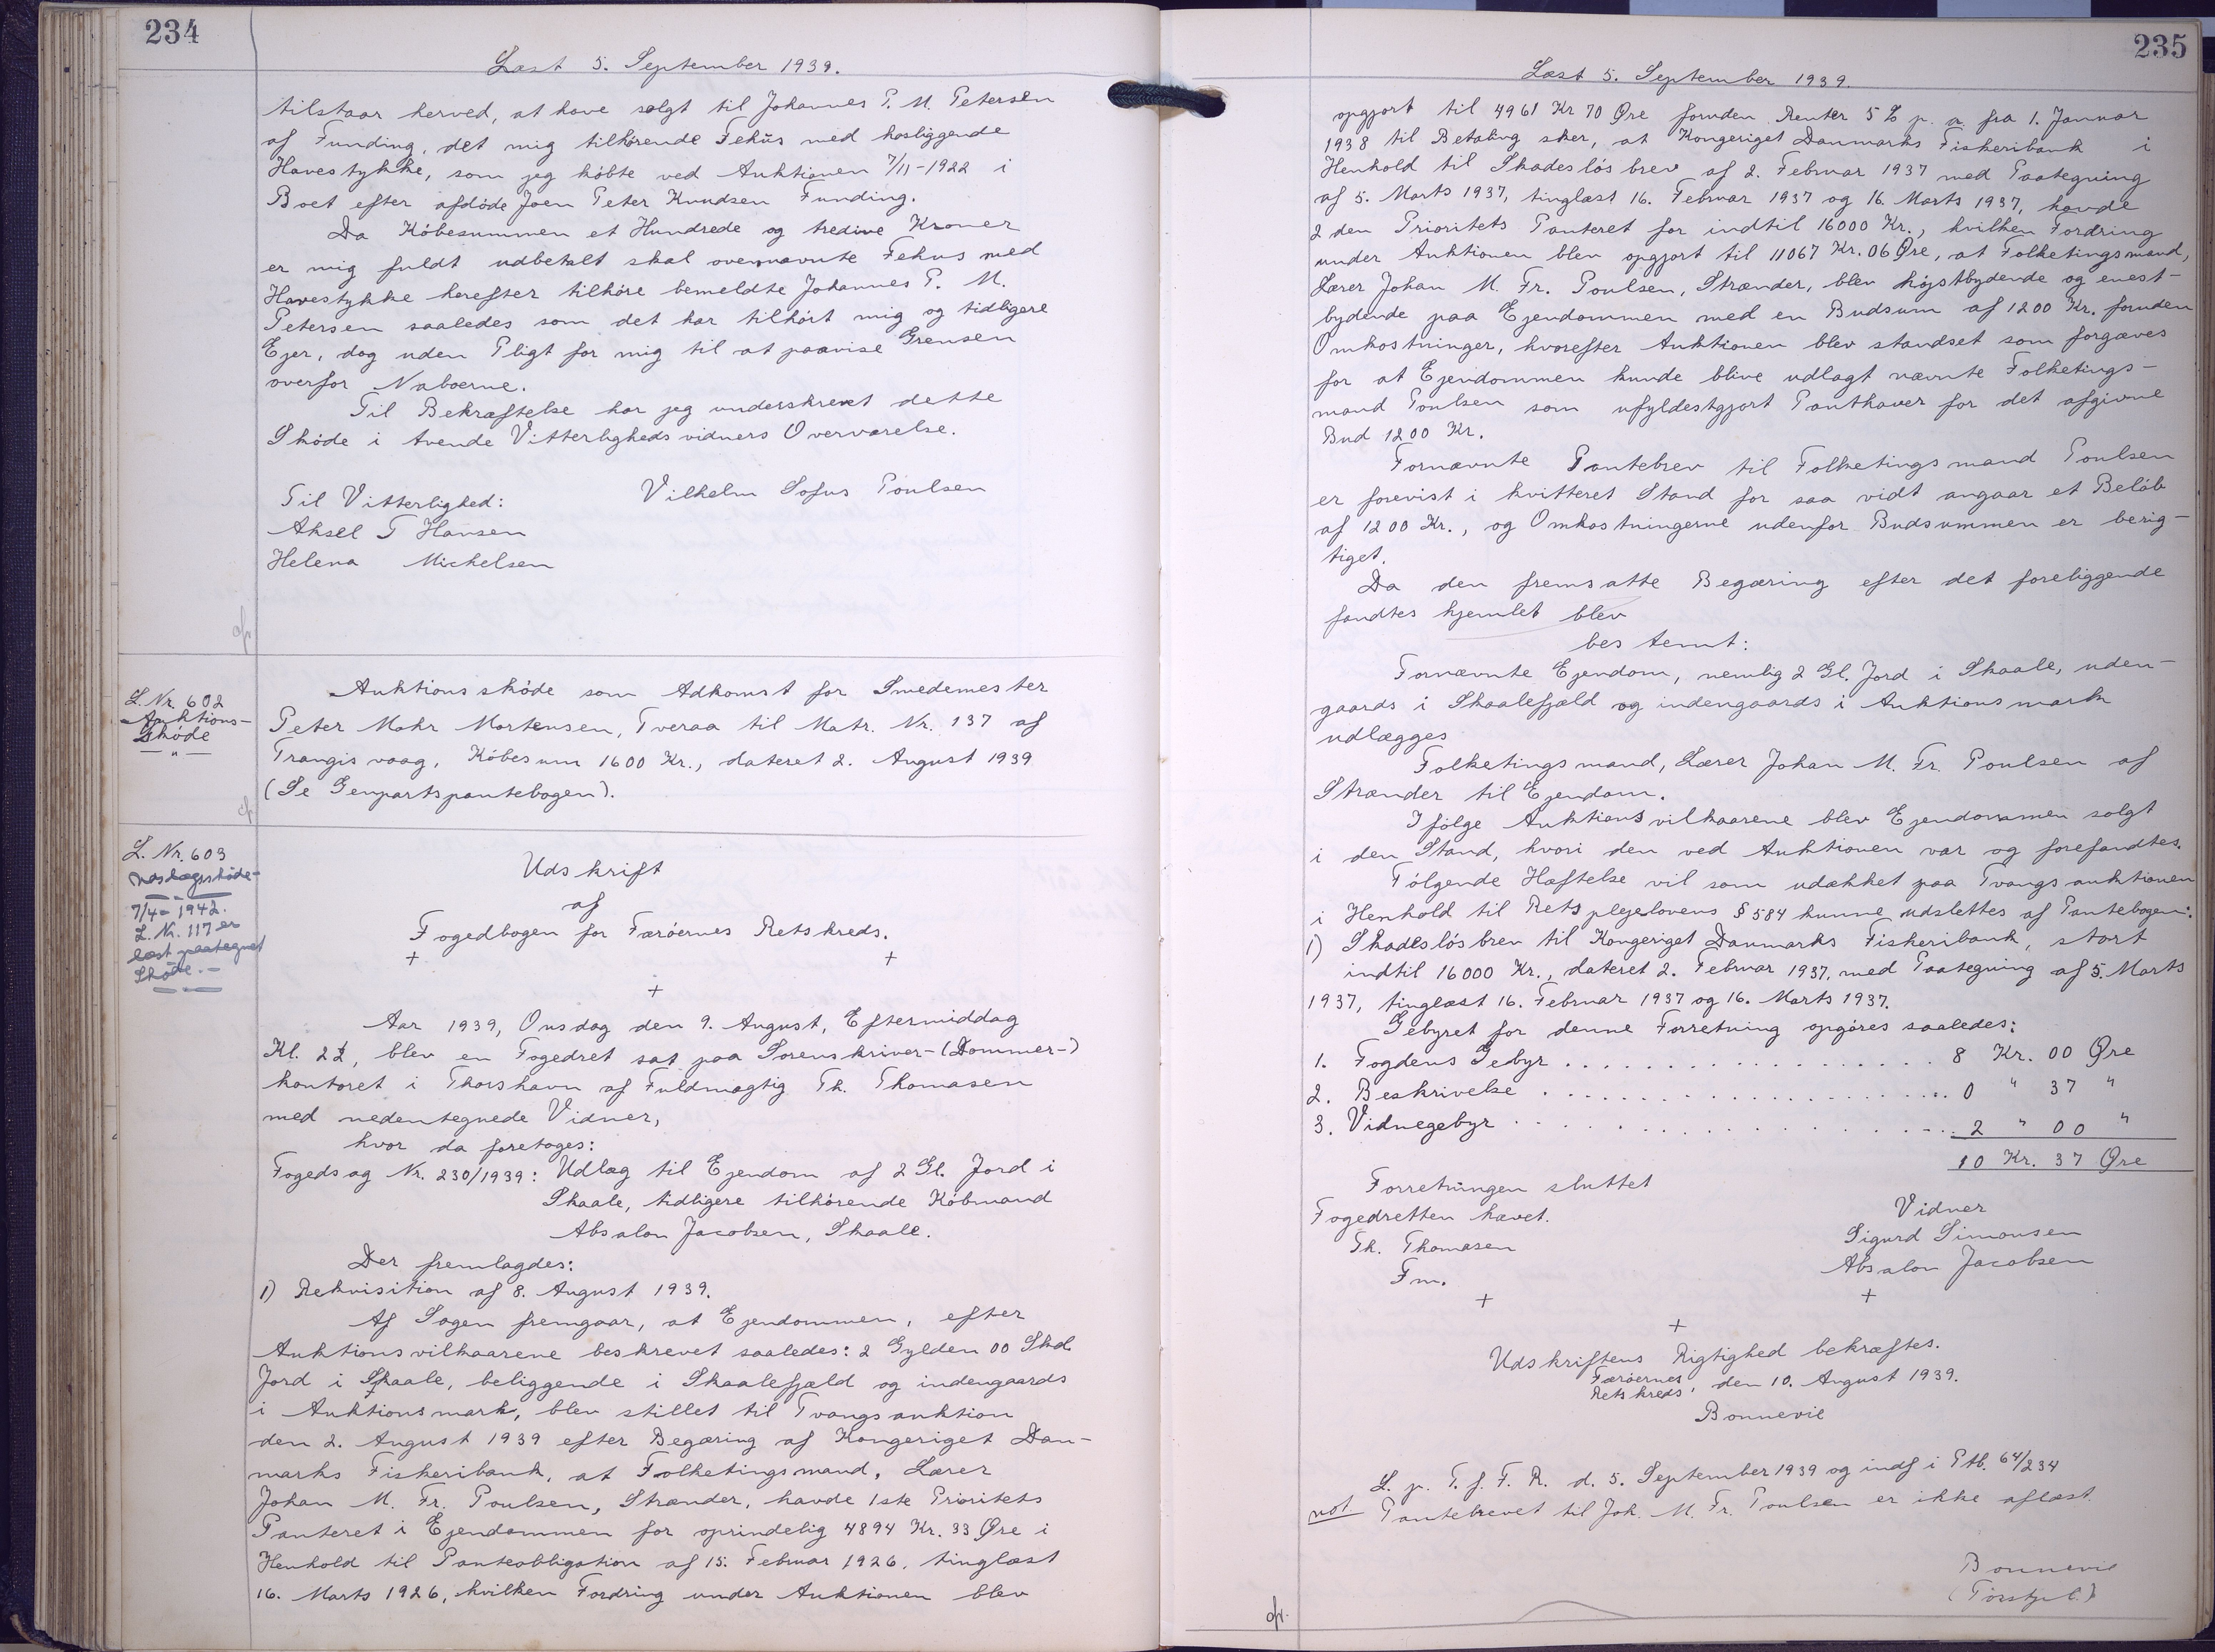 234
Læst 5. September 1939.
tilstaar herved, at have solgt til Johannes P. M. Petersen
af Funding, det mig tilhørende Fehüs med hosliggende
Havestykke, som jeg købte ved Auktionen 7/11-1922 i
Boet efter afdøde Joen Peter Knudsen Funding.
Da Købesummen et Hundrede og tredive Kroner
er mig fuldt udbetalt skal ovennævnte Fehus med
Havestykke herefter tilhøre bemeldte Johannes P. M.
Petersen saaledes som det har tilhørt mig og tidligere
Ejer, dog uden Pligt for mig til at paavise Grensen
overfor Naboerne.
Til Bekræftelse har jeg underskrevet dette
Skøde i tvende Vitterligheds vidners Overværelse.
Til Vitterlighed:
Vilhelm Sofus Poulsen
Aksel T Hansen
Helena Michelsen
L. Nr. 602
Auktions-
skøde
— " —
Auktionsskøde som Adkomst for Smedemester
Peter Mohr Mortensen, Tveraa til Matr. Nr. 137 af
Trangisvaag, Købesum 1600 Kr., dateret 2. August 1939
(Se Genpartspantebogen).
L. Nr. 603
Udlægsskøde-
7/4-1942.
L. Nr. 117 er
læst paategnet
Skøde.-
Udskrift
af
Fogedbogen for Færøernes Retskreds.
+ +
+
Aar 1939, Onsdag den 9. August, Eftermiddag
Kl. 2½, blev en Fogedret sat paa Sorenskriver-(Dommer-)
kontoret i Thorshavn af Fuldmægtig Th. Thomasen
med nedentegnede Vidner,
hvor da foretoges:
Fogedsag Nr. 230/1939: Udlæg til Ejendom af 2 Gl. Jord i
Skaale, tidligere tilhørende Købmand
Absalon Jacobsen, Skaale.
Der fremlagdes:
1) Rekvisition af 8. August 1939.
Af Sagen fremgaar, at Ejendommen, efter
Auktionsvilkaarene beskrevet saaledes: 2 Gylden 00 Skd.
Jord i Skaale, beliggende i Skaalefjæld og indengaards
i Auktionsmark, blev stillet til Tvangsauktion
den 2. August 1939 efter Begæring af Kongeriget Dan-
marks Fiskeribank, at Folketingsmand, Lærer
Johan M. Fr. Poulsen, Strænder, havde 1ste Prioritets
Panteret i Ejendommen for oprindelig 4894 Kr. 33 Øre i
Henhold til Panteobligation af 15. Februar 1926, tinglæst
16. Marts 1926, hvilken Fordring under Auktionen blev
235
Læst 5. September 1939.
opgjort til 4961 Kr 70 Øre foruden Renter 5 % p. a. fra 1. Januar
1938 til Betaling sker, at Kongeriget Danmarks Fiskeribank i
Henhold til Skadesløsbrev af 2. Februar 1937 med Paategning
af 5. Marts 1937, tinglæst 16. Februar 1937 og 16. Marts 1937, havde
2 den Prioritets Panteret for indtil 16000 Kr., hvilken Fordring
under Auktionen blev opgjort til 11067 Kr. 06 Øre, at Folketingsmand,
Lærer Johan M. Fr. Poulsen, Strænder, blev højstbydende og enest-
bydende paa Ejendommen med en Budsum af 1200 Kr. foruden
Omkostninger, hvorefter Auktionen blev standset som forgæves
for at Ejendommen kunde blive udlagt nævnte Folketings-
mand Poulsen som ufyldestgjort Panthaver for det afgivne
Bud 1200 Kr.
Fornævnte Pantebrev til Folketingsmand Poulsen
er forevist i kvitteret Stand for saa vidt angaar et Beløb
af 1200 Kr., og Omkostningerne udenfor Budsummen er berig-
tiget.
Da den fremsatte Begæring efter det foreliggende
fandtes hjemlet blev
bestemt:
Fornævnte Ejendom, nemlig 2 Gl. Jord i Skaale, uden-
gaards i Skaalefjæld og indengaards i Auktionsmark
udlægges
Folketingsmand, Lærer Johan M. Fr. Poulsen af
Strænder til Ejendom.
Ifølge Auktionsvilkaarene blev Ejendommen solgt
i den Stand, hvori den ved Auktionen var og forefandtes.
Følgende Hæftelse vil som udækket paa Tvangsauktionen
i Henhold til Retsplejelovens § 584 kunne udslettes af Pantebogen:
1) Skadesløsbrev til Kongeriget Danmarks Fiskeribank, stort
indtil 16000 Kr., dateret 2. Februar 1937, med Paategning af 5. Marts
1937, tinglæst 16. Februar 1937 og 16. Marts 1937.
Gebyret for denne Forretning opgøres saaledes:
1. Fogdens Gebyr . . . . . . . . . . 8 Kr. 00 Øre
2. Beskrivelse . . . . . . . . . . 0 " 37 "
3. Vidnegebyr . . . . . . . . . . 2 " 00 "
10 Kr. 37 Øre
Forretningen sluttet
Fogedretten hævet.
Th. Thomasen
Fm.
Vidner
Sigurd Simonsen
Absalon Jacobsen
+ +
+
Udskriftens Rigtighed bekræftes.
Færøernes Retskreds, den 10. August 1939.
Bonnevie
L. p. T. f. F. R. d. 5. September 1939 og indf i Ptb. 64/234
not Pantebrevet til Joh. M. Fr. Poulsen er ikke aflæst.
Bonnevie